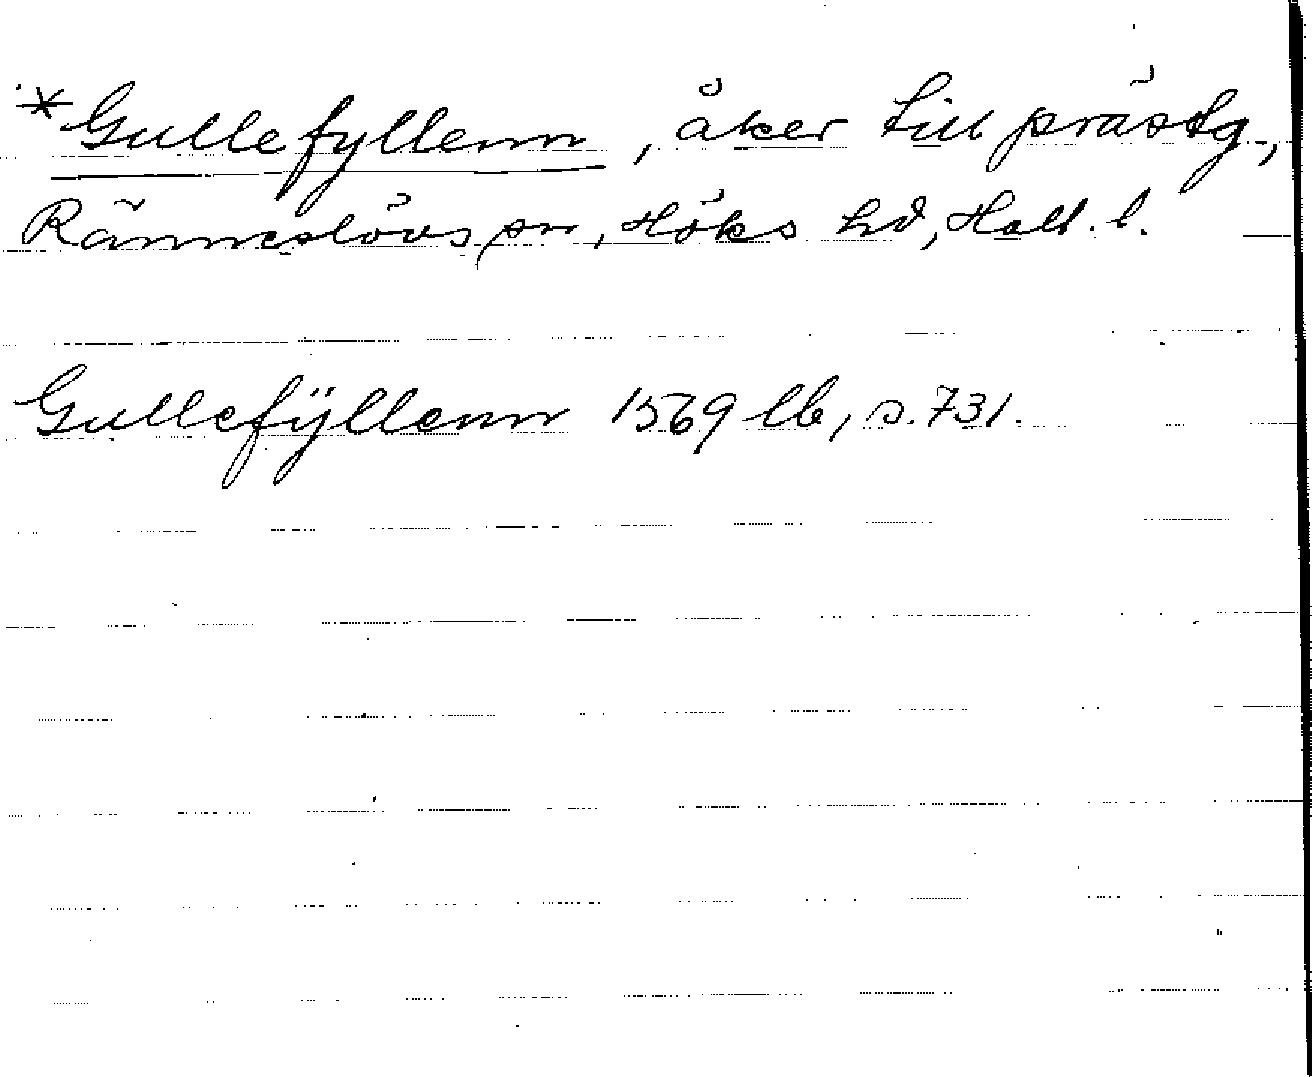 *Gullefyllenn, åker till prästg,
Ränneslövs sn, Höks hd, Hall. l.
Gullefÿllenn 1569 lb, s. 731.